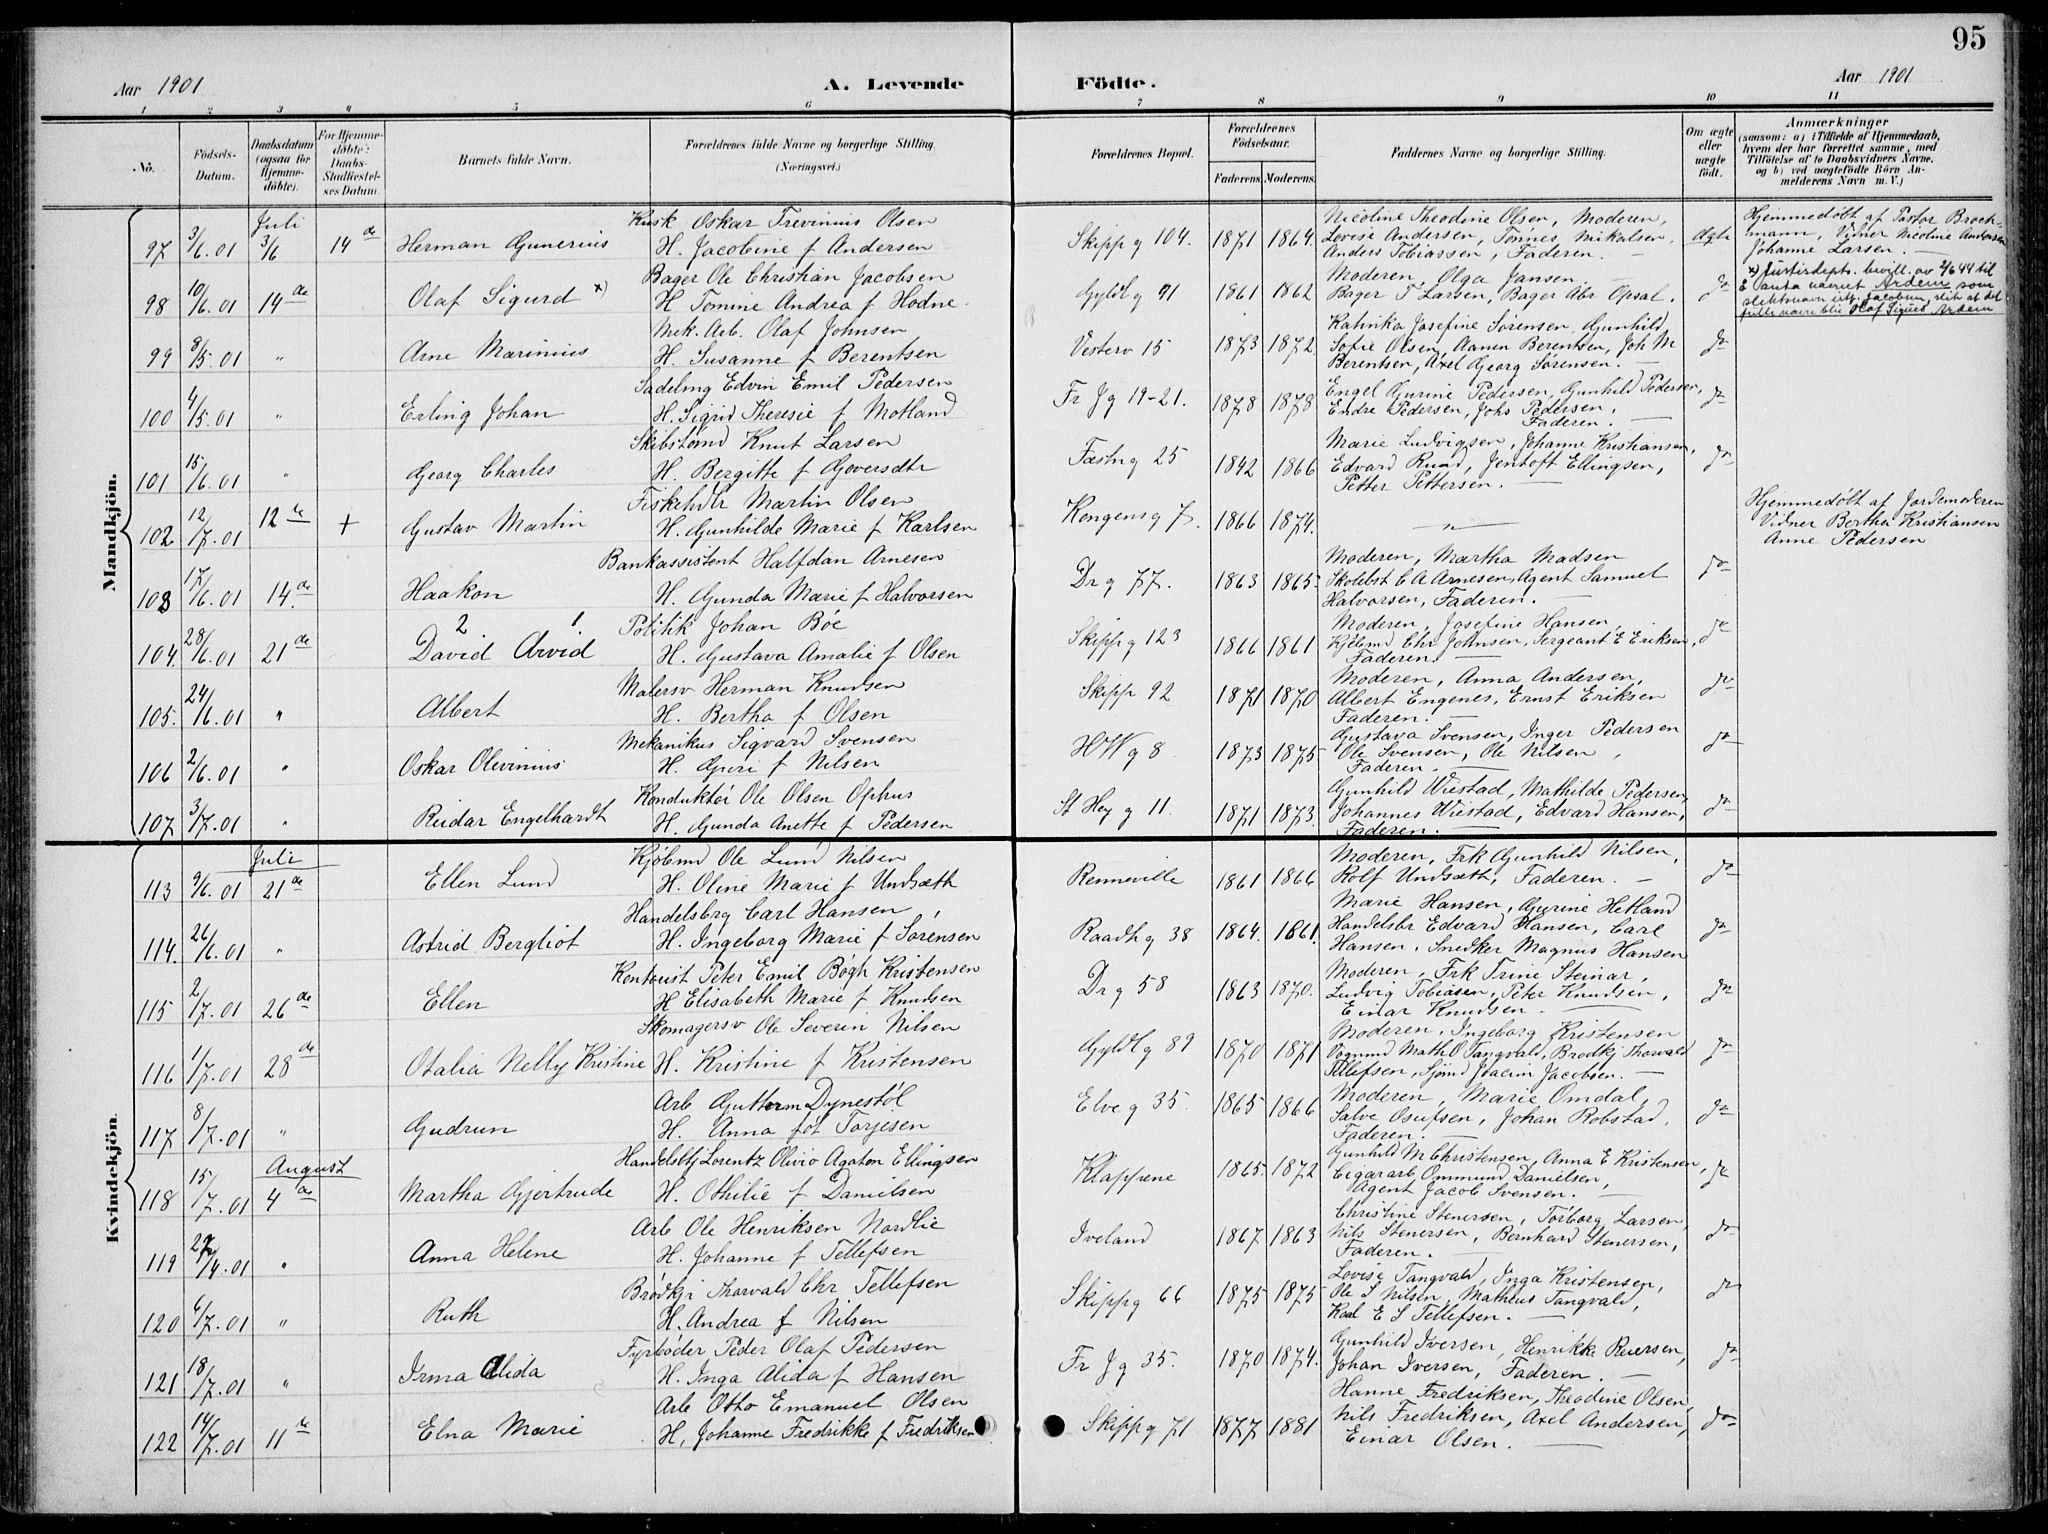 95
Aar 1901 A. Levende Födte. Aar 1901
1 2 3 4 5 6 7 8 9 10 11
No.
Födsels-Datum.
Daabsdatum (ogsaa for Hjemmedöbte).
For Hjemmedöbte: Daabs-Stadfestelses Datum.
Barnets fulde Navn.
Forældrenes fulde Navne og borgerlige Stilling.
(Næringsvei.)
Forældrenes Bopæl.
Forældrenes Födselsaar.
Faderens. Moderens.
Faddernes Navne og borgerlige Stilling.
Om ægte eller uægte födt.
Anmærkninger
(saasom: a) i Tilfælde af Hjemmedaab,
hvem der har forrettet samme, med
Tilföielse af to Daabsvidners Navne,
og b) ved uægtefödte Börn An-
melderens Navn m. V.)
Mandkjön.
Juli
97 3/6.01 3/6 14de Herman Gunerius Kusk Oskar Trevinius Olsen
H. Jacobine f Andersen
Skippg 104. 1871 1864. Nicoline Theodine Olsen, Moderen,
Lovise Andersen, Tønnes Mikalsen,
Anders Tobiassen, Faderen. —
Ægte
Hjemmedøbt af Pastor Brock-
mann, Vidner Nicoline Andersen
Johanne Larsen. —
98 10/6.01 14de Olaf Sigurd x) Bager Ole Christian Jacobsen
H Tomine Andrea f Hodne.
Gyldlg 91 1861 1862 Moderen, Olga Jansen —
Bager T Larsen, Bager Abr Opsal.
do
x) Justisdepts. bevill. av 2/6 44 til
å anta navnet Ardem som
slektsnavn istf. Jacobsen, slik at det
fulle navn blir Olaf Sigurd Ardem
99 8/5.01 " Arne Marinius Mek. Arb. Olaf Johnsen
H. Susanne f Berentsen
Vesterv 15 1873 1872 Katinka Josefine Sørensen, Gunhild
Sofie Olsen, Aanen Berentsen, Joh M
Berentsen, Axel Georg Sørensen.
do
100 4/5.01 " Erling Johan Sadelmg Edvin Emil Pedersen
H. Sigrid Theresie f Motland
Fr Jg 19-21. 1878 1878 Engel Gurine Pedersen, Gunhild Pedersen,
Endre Pedersen, Johs Pedersen,
Faderen. —
do
101 15/6.01 " Georg Charles Skibstømd Knut Larsen
H. Bergitte f Goversdtr
Fæstng 25 1842 1866 Marie Ludvigsen, Johanne Kristiansen,
Edvard Ruud, Jentoft Ellingsen,
Petter Pettersen. —
do
102 12/7.01 12te + Gustav Martin Fiskehdlr Martin Olsen
H. Gunhilde Marie f Karlsen
Kongensg 7. 1866 1874. "
Hjemmedøbt af Jordemoderen
Vidner Berthe Kristiansen
Anne Pedersen
103 17/6.01 14.de Haakon Bankassistent Halfdan Arnesen
H. Gunda Marie f Halvorsen
Drg 77. 1863 1865. Moderen, Martha Madsen
Skolebst C A Arnesen, Agent Samuel
Halvorsen, Faderen. —
do
104. 28/6.01 21de 2 1.
David Arvid Politik Johan Bøe
H. Gustava Amalie f Olsen
Skippg 123 1866 1861 Moderen, Josefine Hansen,
Kjøbmd Chr Johnsen, Sergeant E Eriksen,
Faderen. —
do
105. 24/6.01 " Albert Malersv Herman Knudsen
H. Bertha f Olsen
Skipp 92 1871 1870 Moderen, Anna Andersen,
Albert Engenes, Ernst Eriksen
Faderen. —
do
106 2/6.01 " Oskar Olivinius Mekanikus Sigvard Svensen
H. Guri f Nilsen
HWg 8 1873 1875 Gustava Svensen, Inger Pedersen
Ole Svensen, Ole Nilsen,
Faderen. —
do
107 3/7.01 " Reidar Engelhardt Konduktør Ole Olsen Ophus
H. Gunda Anette f Pedersen
St Heyg 11. 1871 1873. Gunhild Wiestad, Mathilde Pedersen,
Johannes Wiestad, Edvard Hansen,
Faderen. —
do
Kvindekjön
Juli
113 9/6.01 21de Ellen Lund Kjøbmd Ole Lund Nilsen
H. Oline Marie f Undsæth
Renneville 1861 1866 Moderen, Frk Gunhild Nilsen,
Rolf Undsæth, Faderen. —
do
114. 26/6.01 " Astrid Bergliot Handelsbrg Carl Hansen,
H. Ingeborg Marie f Sørensen
Raadhg 38 1864. 1861. Marie Hansen, Gurine Hetland
Handelsbr Edvard Hansen, Carl
Hansen, Snedker Magnus Hansen
do
115 2/7.01 26de Ellen Kontorist Peter Emil Bøgh Kristensen
H Elisabeth Marie f Knudsen
Drg 58 1863 1870. Moderen, Frk Trine Steinar,
Ludvig Tobiasen, Peter Knudsen,
Einar Knudsen. —
do
116 1/7.01 28de Otalia Nelly Kristine Skomagersv Ole Severin Nilsen
H. Kristine f Kristensen
Gyldlg 89 1870 1871 Moderen, Ingeborg Kristensen
Vognmd Math O Tangvald, Brødkj Thorvald
Tellefsen, Sjømd Joacim Jacobsen. —
do
117 8/7.01 " Gudrun Arb Guttorm Dynestøl
H. Anna føt Torjesen
Elveg 35. 1865 1866 Moderen, Marie Omdal,
Salve Osufsen, Johan Robstad,
Faderen. —
do
August
118 15/7.01 4de Martha Gjertrude Handelsbtj Lorentz Olivio Agaton Ellingsen
H. Othilie f Danielsen
Klappene 1865. 1872 Gunhild M Christensen, Anna E Kristensen,
Cigararb Ommund Danielsen,
Agent Jacob Svensen. —
do
119 27/4.01 " Anna Helene Arb Ole Henriksen Nordlie
H. Johanne f Tellefsen
Iveland 1867. 1863 Christine Stenersen, Torborg Larsen,
Nils Stenersen, Bernhard Stenersen,
Faderen. —
do
120 6/7.01 " Ruth Brødkjr Thorvald Chr Tellefsen
H. Andrea f Nilsen
Skippg 66 1875 1875 Lovise Tangvald, Inga Kristensen,
Ole S Nilsen, Matheus Tangvald,
Karl E S Tellefsen. —
do
121 18/7.01 " Irma Alida Fyrbøder Peder Olaf Pedersen
H. Inga Alida f Hansen
Fr Jg 35. 1870 1874. Gunhild Iversen, Henrikke Reiersen,
Johan Iversen, Faderen. —
do
122 14/7.01 11te Elna Marie Arb Otto Emanuel Olsen
H, Johanne Fredrikke f Fredriksen
Skippg 71 1877 1881 Hanne Fredriksen, Theodine Olsen,
Nils Fredriksen, Axel Andersen,
Einar Olsen. —
do